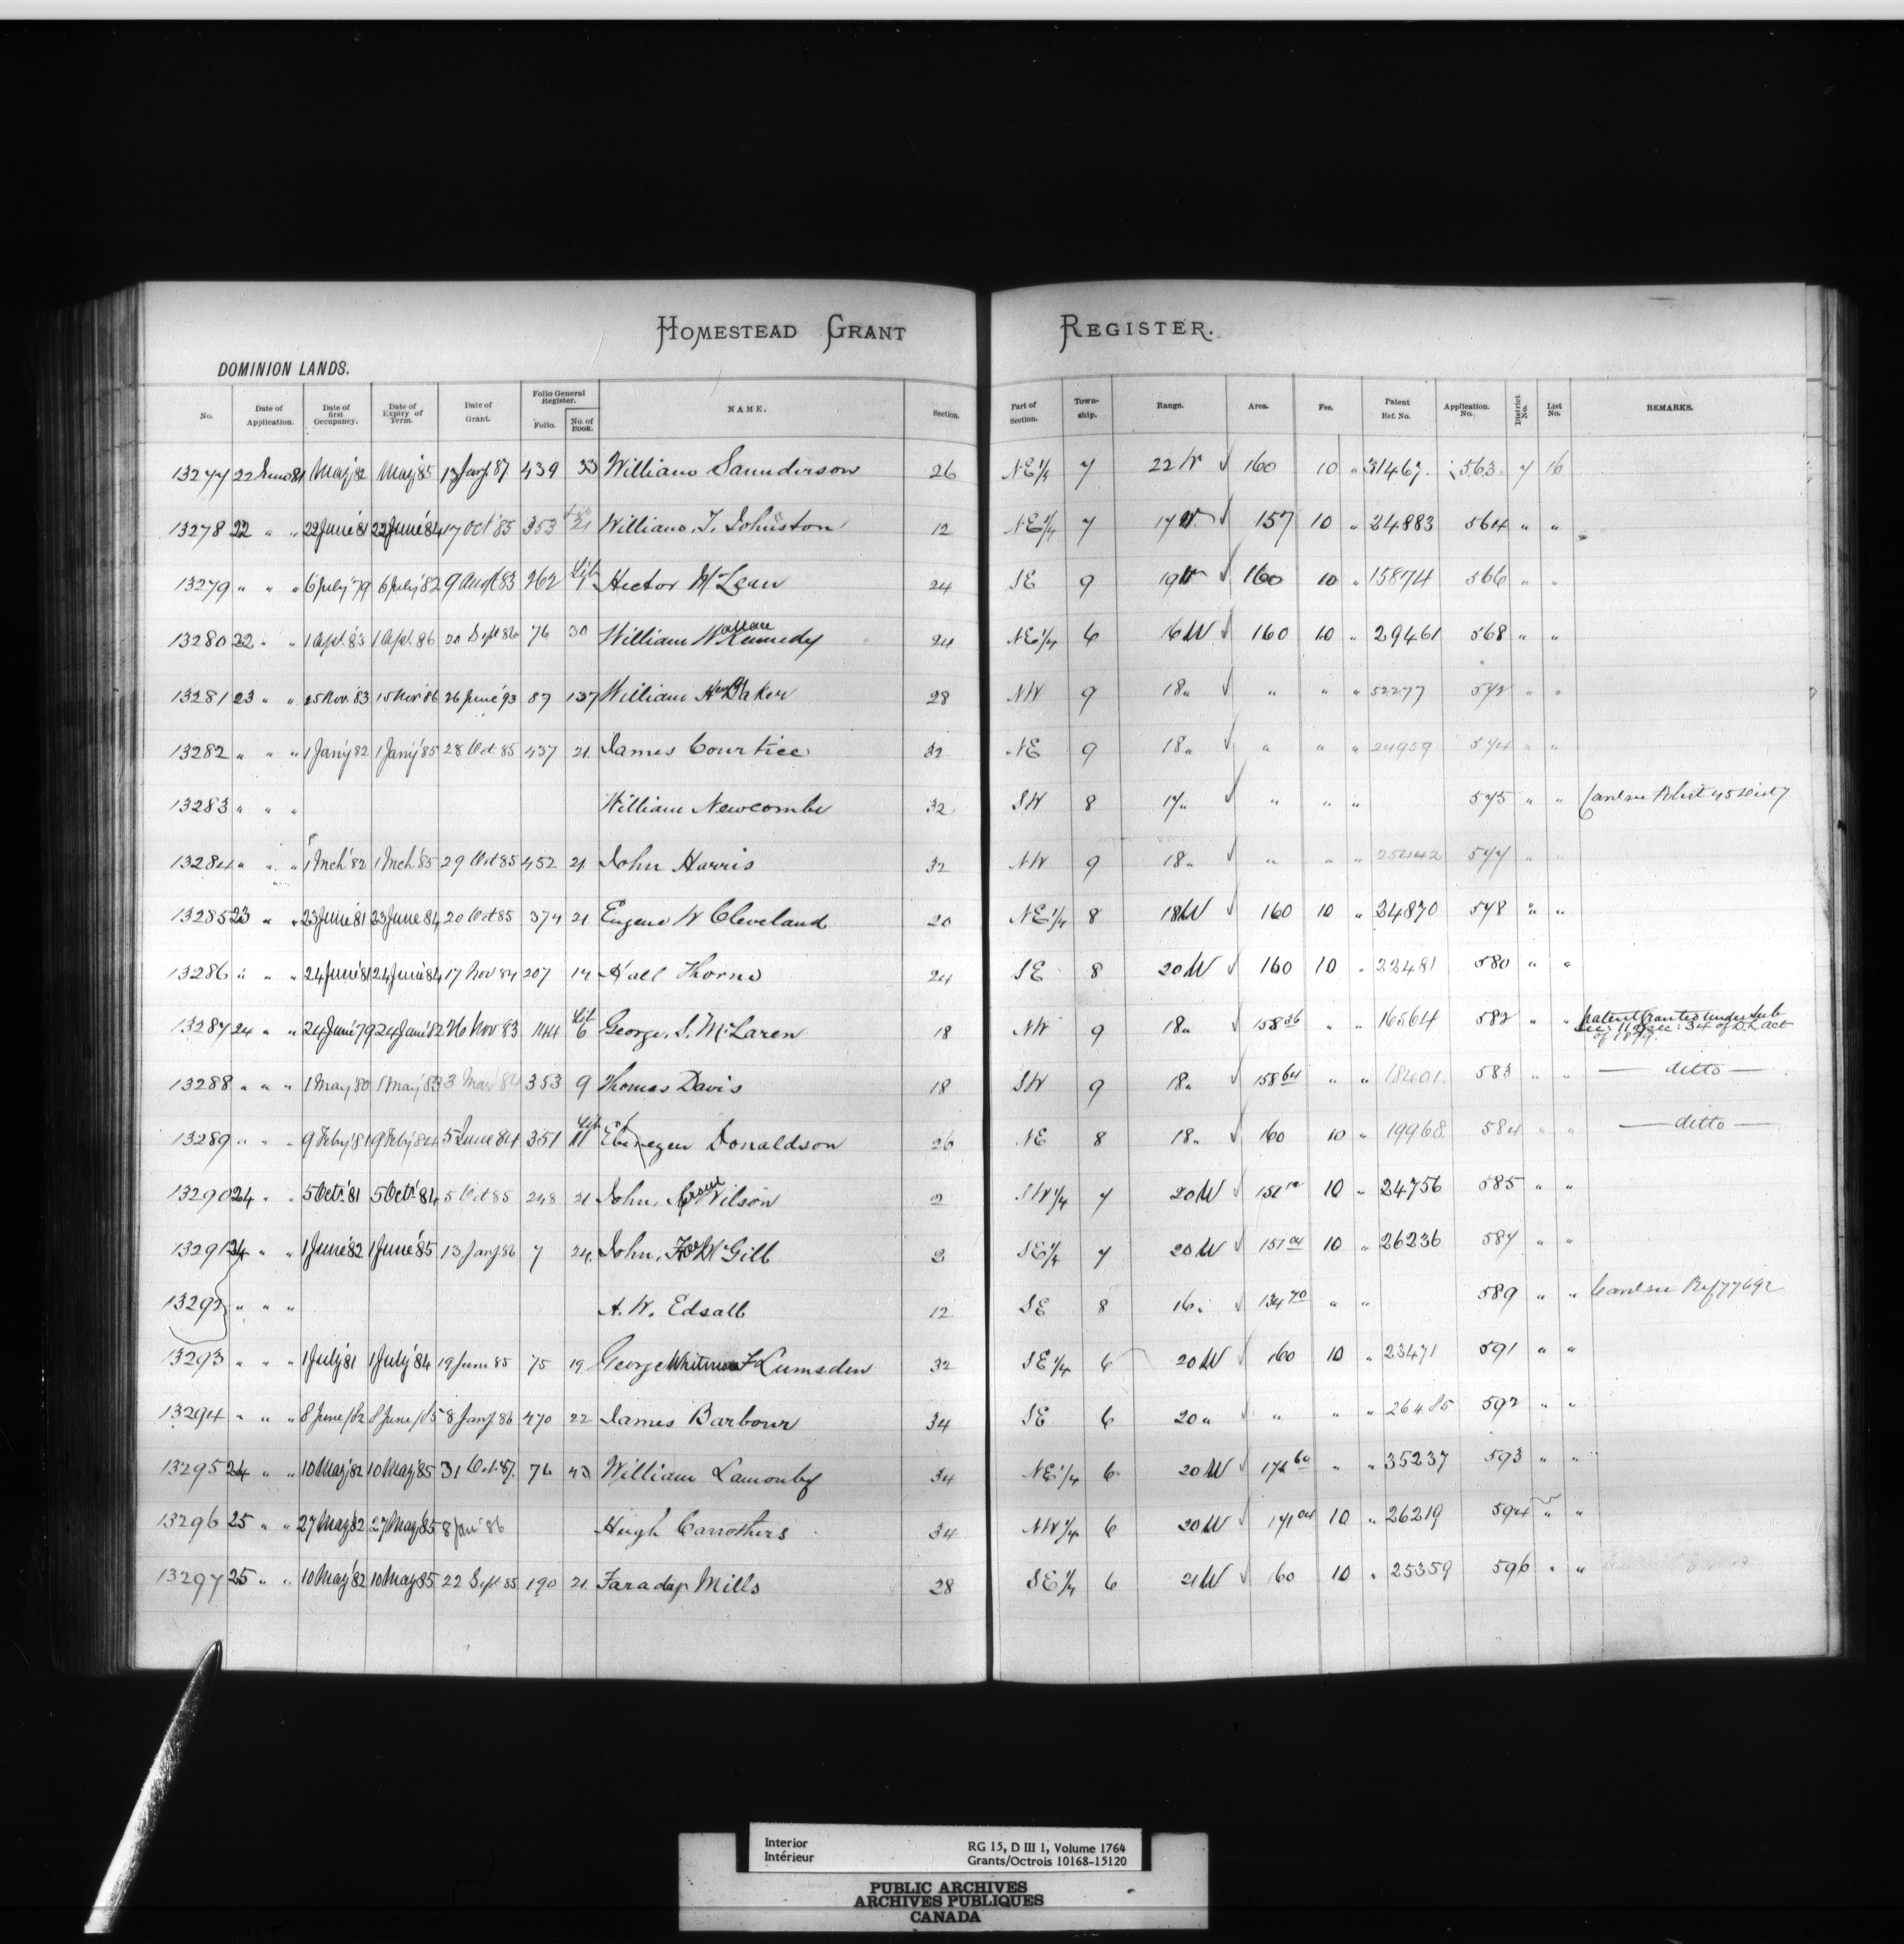 HOMESTEAD GRANT REGISTER.
DOMINION LANDS.
No. Date of Application. Date of first Occupancy. Date of Expiry of Term. Date of Grant. Folio General Register. Folio. No. of Book. NAME. Section. Part of Section. Town-ship. Range. Area. Fee. Patent Ref. No. Application. No. District No. List No. REMARKS.
13277 22 June 81 May '82 May '85 13 Jany 87 439 33 William Saunderson 26 NE 1/4 7 22 W √ 160 10 " 31467. 563 7 16
13278 22 " " 22 June '81 22 June '84 17 Oct '85 353 21 William. T. Johnston 12 NE 1/4 7 17 W. √ 157 10 " 24883 564 " "
13279 " " " 6 July '79 6 July '82 9 Augt 83 262 Hector McLean 24 SE 9 19 W √ 160 10 " 15874 566 " "
13280 22 " " 1 Apl. 83 1 Apl. 86 20 Sept 86 76 30 William Wallace Kennedy 24 NE 1/4 6 16 W √ 160 10 " 29461 568 " "
13281 23 " " 15 Nov. '83 15 Nov '86 26 June '93 87 137 William Hy Baker 28 NW 9 18 " √ " " " 52277 572 " "
13282 " " " 1 Jany 82 1 Jany '85 28 Oct 85 437 21. James Courtice 32 NE 9 18 " √ " " " 24959 574 " "
13283 " " " William Newcombe 32 SW 8 17 " √ " " " 575 " "
13284 " " " 1 Mch '82 1 Mch '85 29 Oct 85 452 21. John Harris 32 NW 9 18 " √ " " " 25442 577 " "
13285 23 " " 23 June '81 23 June '84 20 Oct 85 374 21 Eugene W Cleveland 20 NE 1/4 8 18 W √ 160 10 " 24870 578 " "
13286 " " " 24 June '81 24 June '84 17 Nov 84 207 14 Hall Thorne 24 SE 8 20 W √ 160 10 " 22481 580 " "
13287 24 " " 24 June '79 24 June '82 26 Nov 83 144 Lib 6 George. S. McLaren 18 NW 9 18 " √ 158 36 " " 16564 582 " " Patent Granted under Sub
Sec: 11 of Sec: 34 of D.L. act
of 1879.
13288 " " " 1 May '80 1 May '83 3 Mar '84 353 9 Thomas Davis 18 SW 9 18 " 158 64 " " 18401. 583 " " — ditto —
13289 " " " 9 Feby '81 9 Feby '84 5 June 84 351 Lib 11 Ebenezer Donaldson 26 NE 8 18 " √ 160 10 " 19968 584 " " — ditto —
13290 24 " " 5 Octr. '81 5 Octr. '84 5 Oct 85 248 21 John, Wilson 2 SW 1/4 7 20 W √ 151 10 " 24756 585 " "
13291 24 " " 1 June '82 1 June '85 13 Jany 86 7 24. John. McGill 2 SE 1/4 7 20 W √ 151 04 10 " 26236 587 " "
13292 " " " A. W. Edsall 12 SE 8 16 " √ 134 70 " " 589 " " Canl see Ref 77692
13293 " " " 1 July '81 1 July '84 19 June 85 75 19. George Lumsden 32 SE 1/4 6 20 W √ 160 10 " 23471 591 " "
13294 " " " 8 June /82 8 June /85 8 Jany 86 470 22 James Barbour 34 SE 6 20 " √ " " " 26485 592 " "
13295 24 " " 10 May '82 10 May '85 31 Oct '87. 76 43 William Lamonby 34 NE 1/4 6 20 W √ 171 60 " " 35237 593 " "
13296 25 " " 27 May '82 27 May '85 8 Jan '86 Hugh Carrothers 34 NW 1/4 6 20 W √ 171 04 10 " 26219 594 " "
13297 25 " " 10 May '82 10 May '85 22 Sept 85 190 21. Faraday Mills 28 SE 1/4 6 21 W √ 160 10 " 25359 596 " "
Interior
Intérieur
RG 15, D III 1, Volume 1764
Grants/Octrois 10168-15120
PUBLIC ARCHIVES
ARCHIVES PUBLIQUES
CANADA